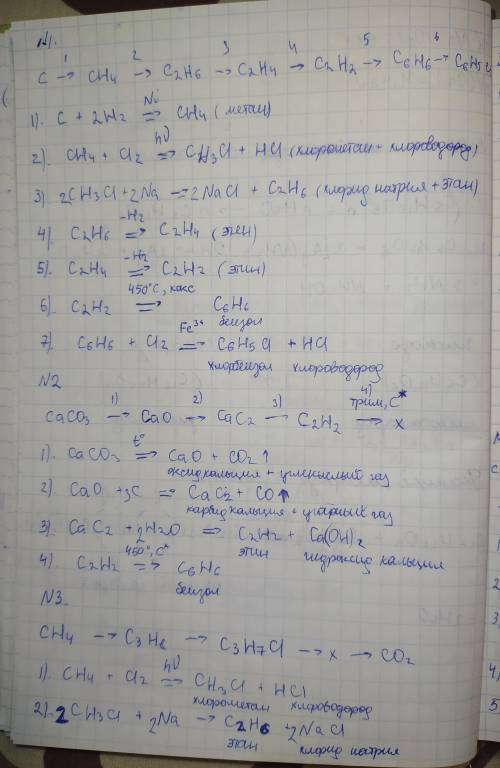 N1.
1 2 3 4 5 6
C → CH4 → C2H6 → C2H4 → C2H2 → C6H6 → C6H5Cl
1). C + 2H2 Ni ⇒ CH4 (метан)
2). CH4 + Cl2 hν ⇒ CH3Cl + HCl (хлорометан + хлороводород)
3) 2CH3Cl + 2Na = 2NaCl + C2H6 (хлорид натрия + этан)
4). C2H6 -H2 ⇒ C2H4 (этен)
5). C2H4 -H2 ⇒ C2H2 (этин)
6). C2H2 450°C, кокс ⇒ C6H6
бензол
7). C6H6 + Cl2 Fe3+ ⇒ C6H5Cl + HCl
хлорбензол хлороводород
N2
CaCO3 1) → CaO 2) → CaC2 3) → C2H2 4) трим, C* → x
1). CaCO3 t° ⇒ CaO + CO2 ↑
оксид кальция + углекислый газ
2) CaO + 3C = CaC2 + CO↑
карбид кальция + угарный газ
3) CaC2 + 2H2O ⇒ C2H2 + Ca(OH)2
этин гидроксид кальция
4). C2H2 450°, C* ⇒ C6H6
бензол
N3.
CH4 → C3H8 → C3H7Cl → x → CO2
1). CH4 + Cl2 hν ⇒ CH3Cl + HCl
хлорометан хлороводород
2). 2CH3Cl + 2Na → C2H6 + 2NaCl
этан хлорид натрия